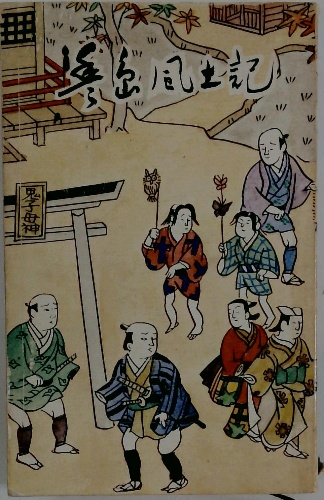 豊島風土記
鬼子母神